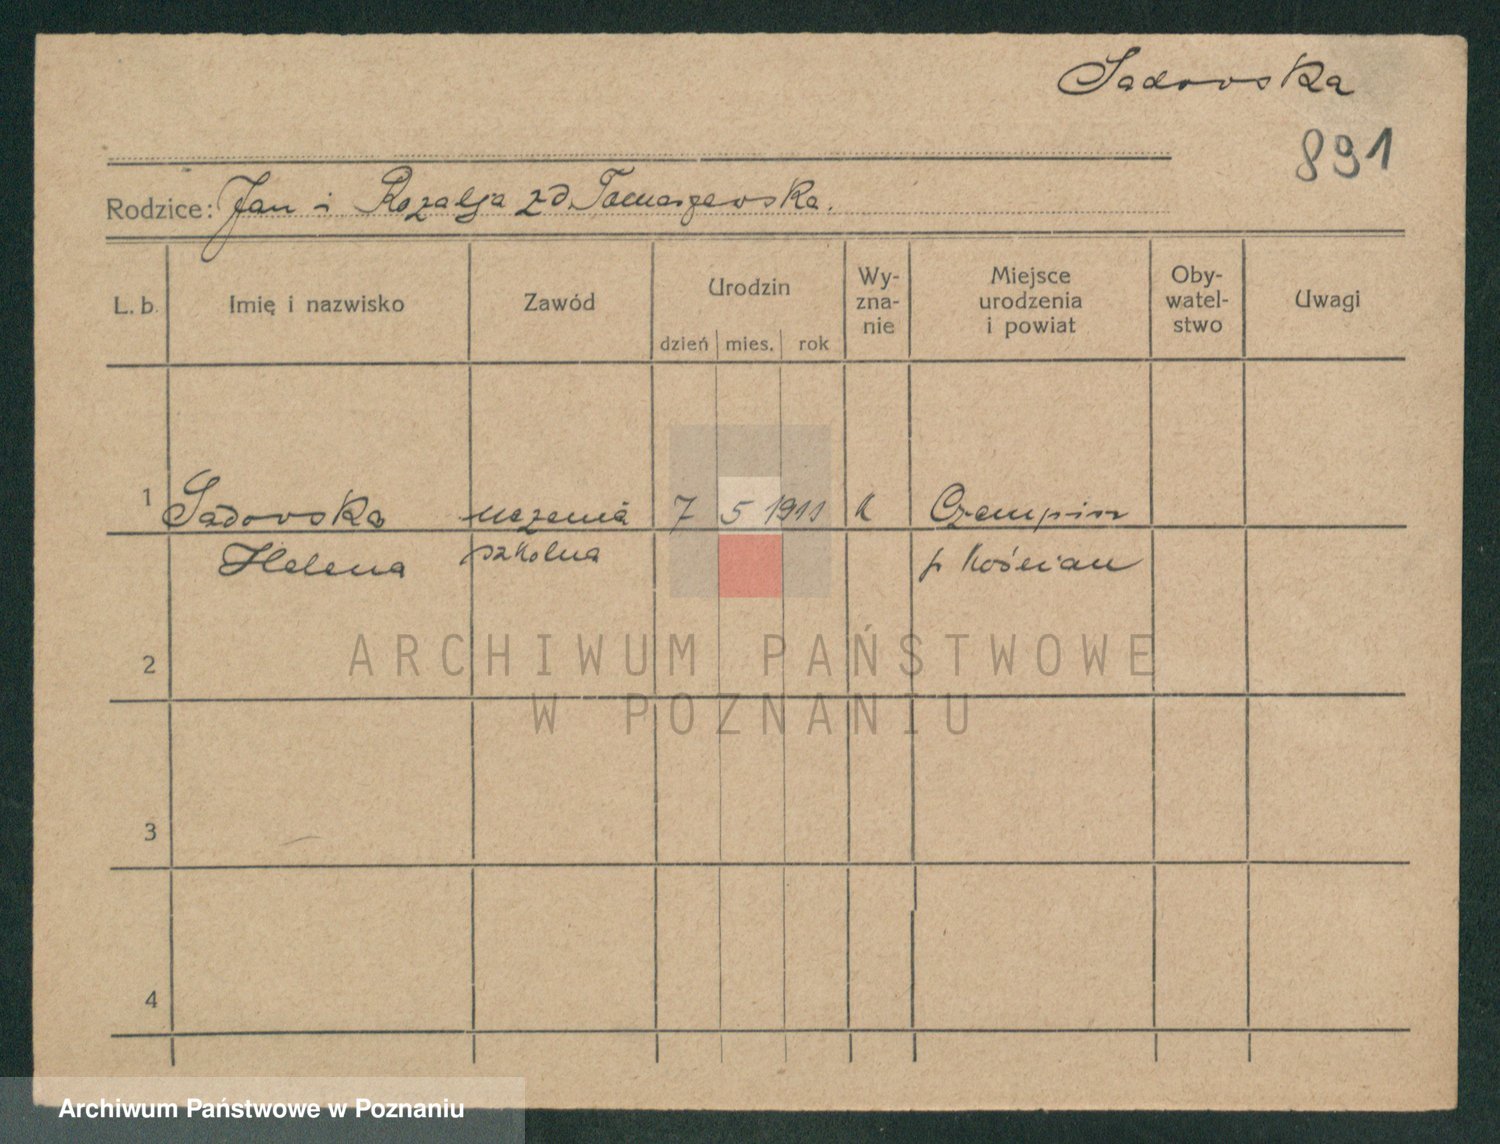 Sadowska
891
Rodzice: Jan i Rozalja zd. Tomaszewska.
L. b. Imię i nazwisko Zawód Urodzin dzień mies. rok Wy-zna-nie Miejsce urodzenia i powiat Oby-watel-stwo Uwagi
1 Sadowska uczenia 7 5 1911 k Czempiń
Helena szkolna p Kościan
2
3
4
ARCHIWUM PAŃSTWOWE
W POZNANIU
Archiwum Państwowe w Poznaniu